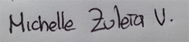 Michelle Zuleta V.